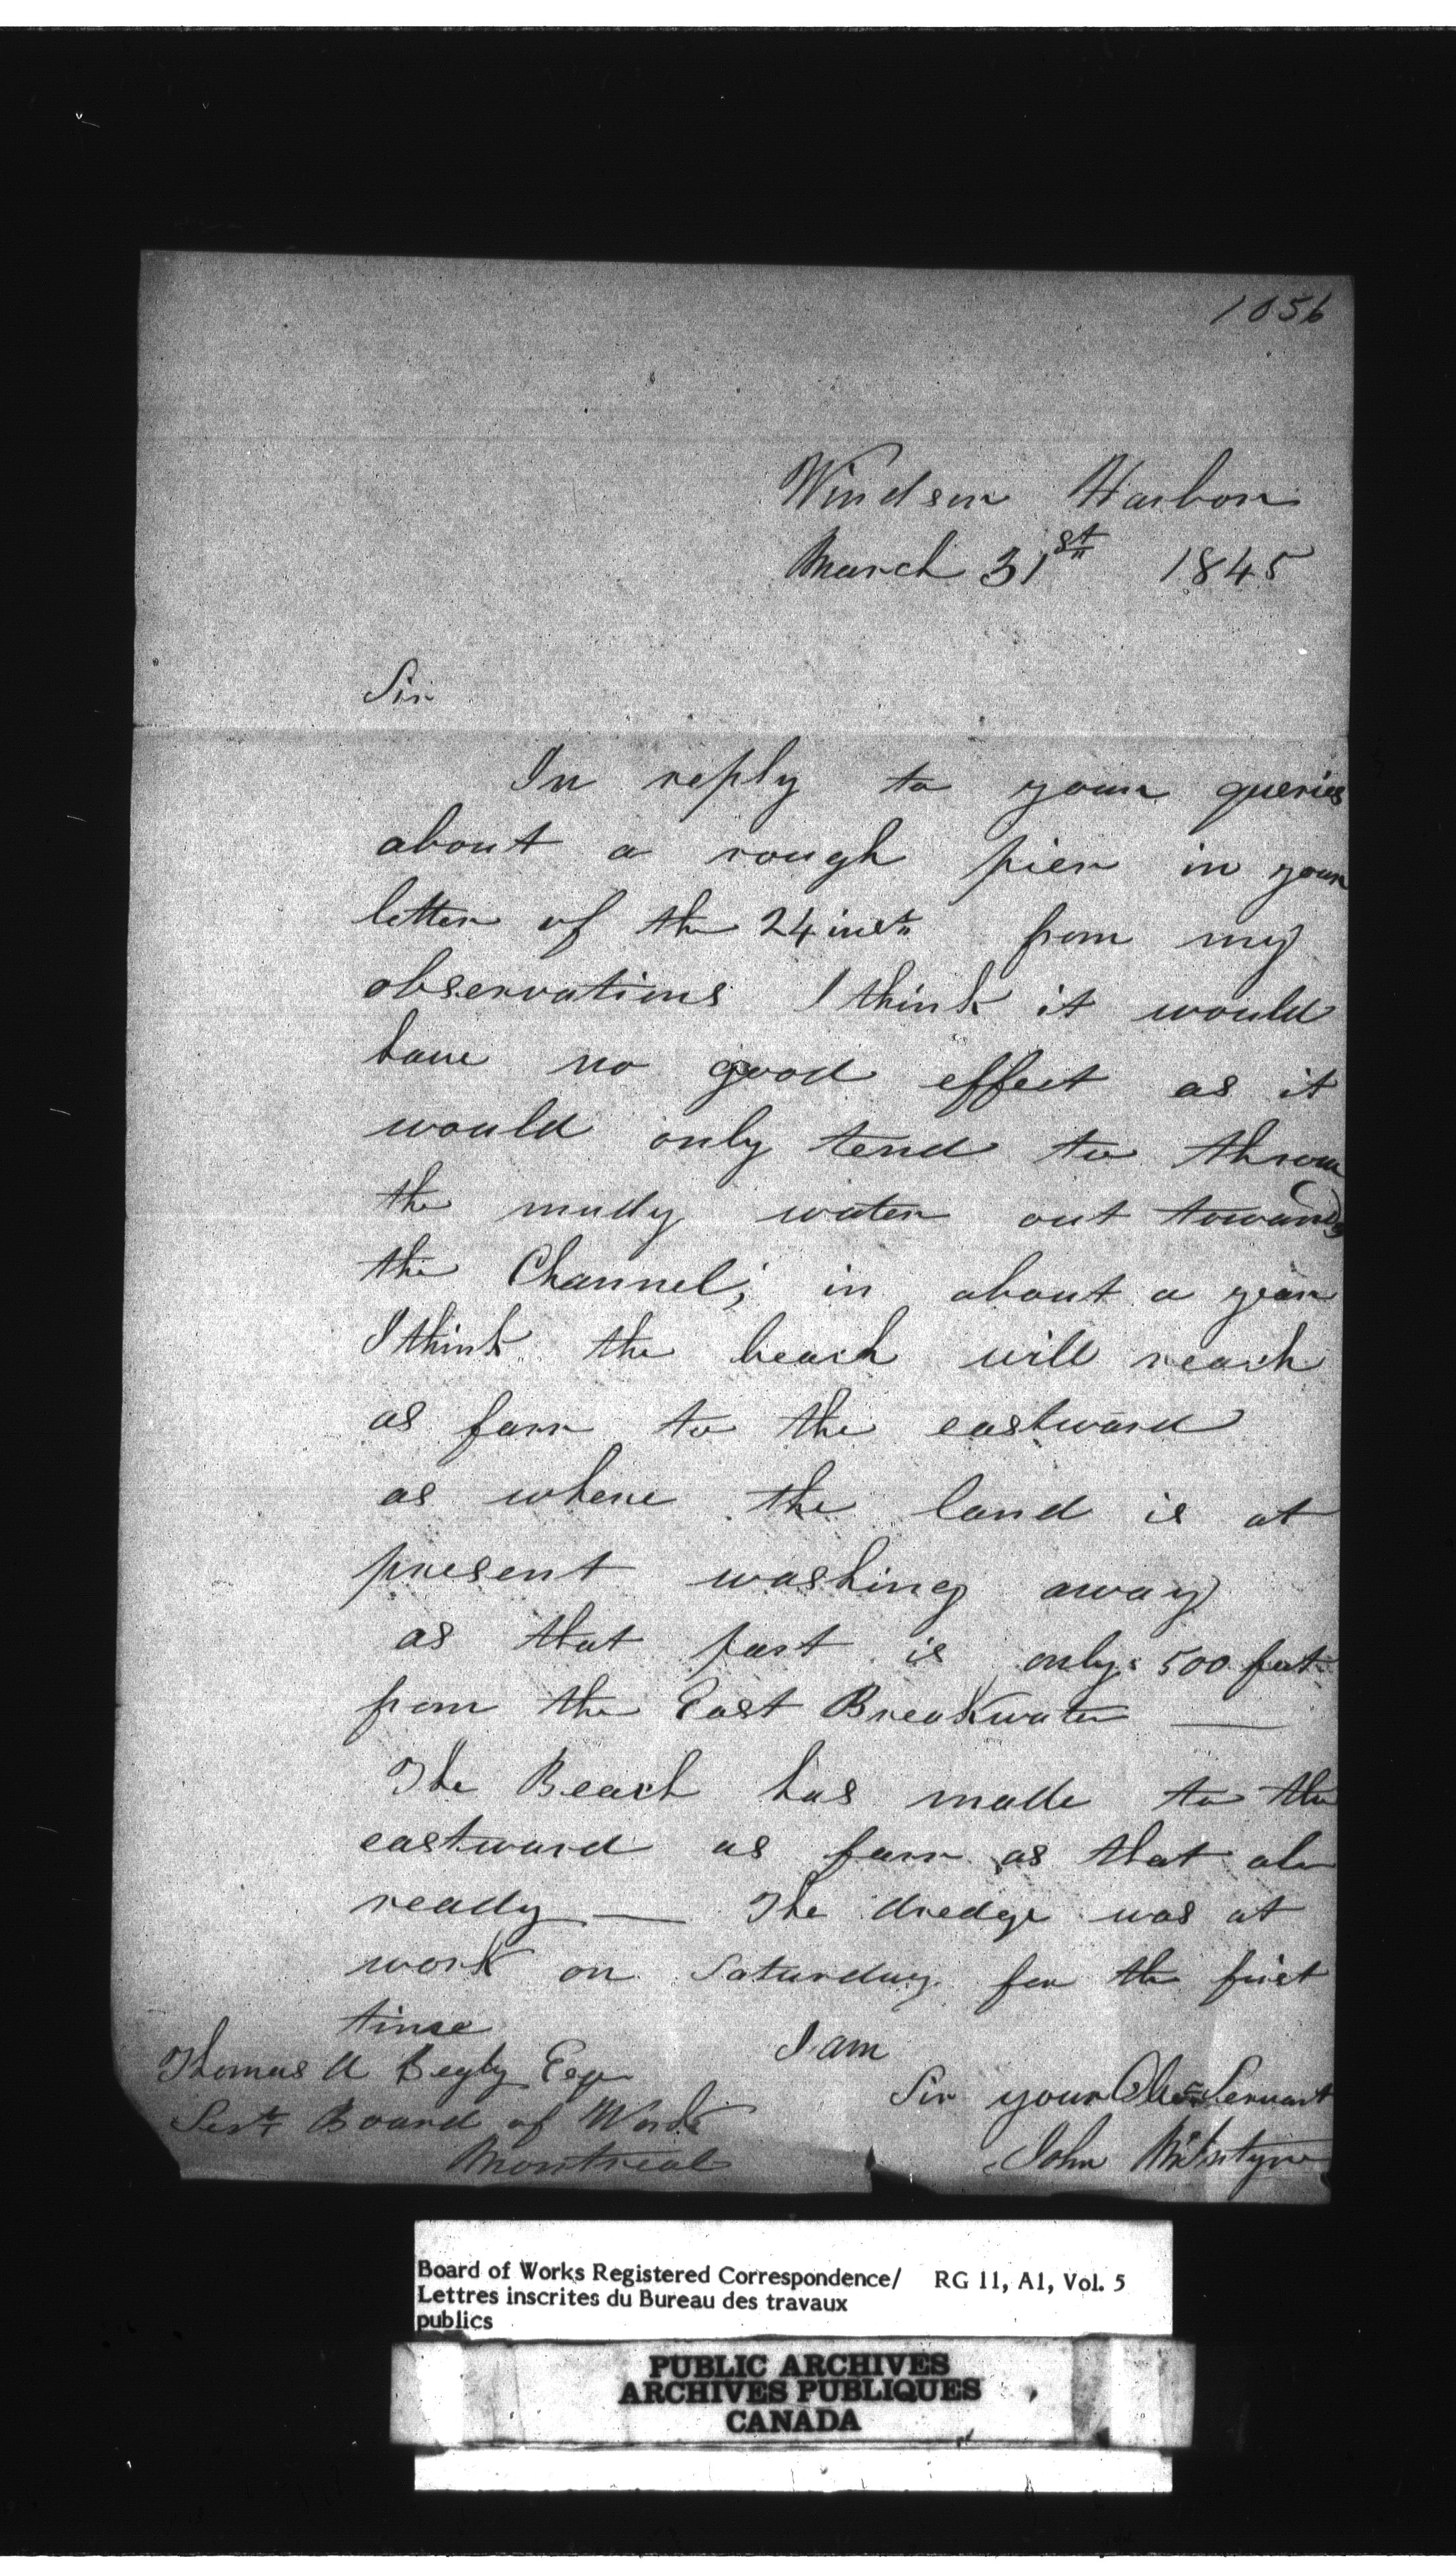 1056
Windsor Harbor
March 31st 1845
Sir
In reply to your queries
about a rough pier in your
letter of the 24 inst from my
observations I think it would
have no good effect as it
would only tend to throw
the mudy water out towards
the Channel; in about a year
I think the beach will reach
as farr to the eastward
as where the land is at
present washing away
as that part is only 500 feet
from the East Breakwater —
The Beach has made to the
eastward as farr as that al
ready — The dredge was at
work on Saturday for the first
time
I am
Sir your Obt Servant
John McIntyre
Thomas A Begly Esqr
Secty Board of Works
Montreal
Board of Works Registered Correspondence/ RG 11, A1, Vol. 5
Lettres inscrites du Bureau des travaux
publics
PUBLIC ARCHIVES
ARCHIVES PUBLIQUES
CANADA